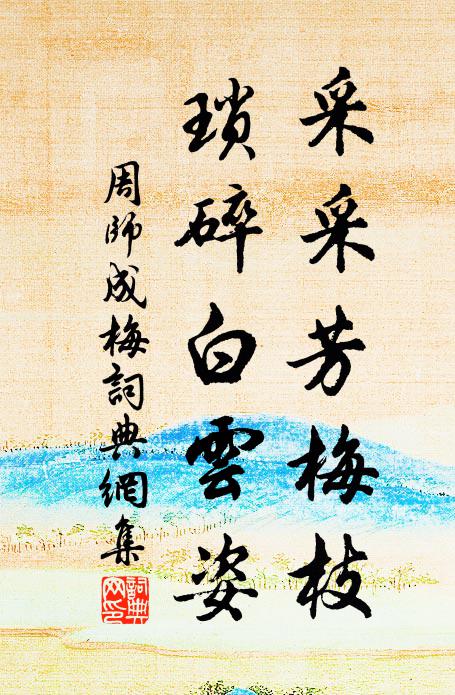 采采芳梅枝
瑣碎白雲姿
周師成梅詞典網集